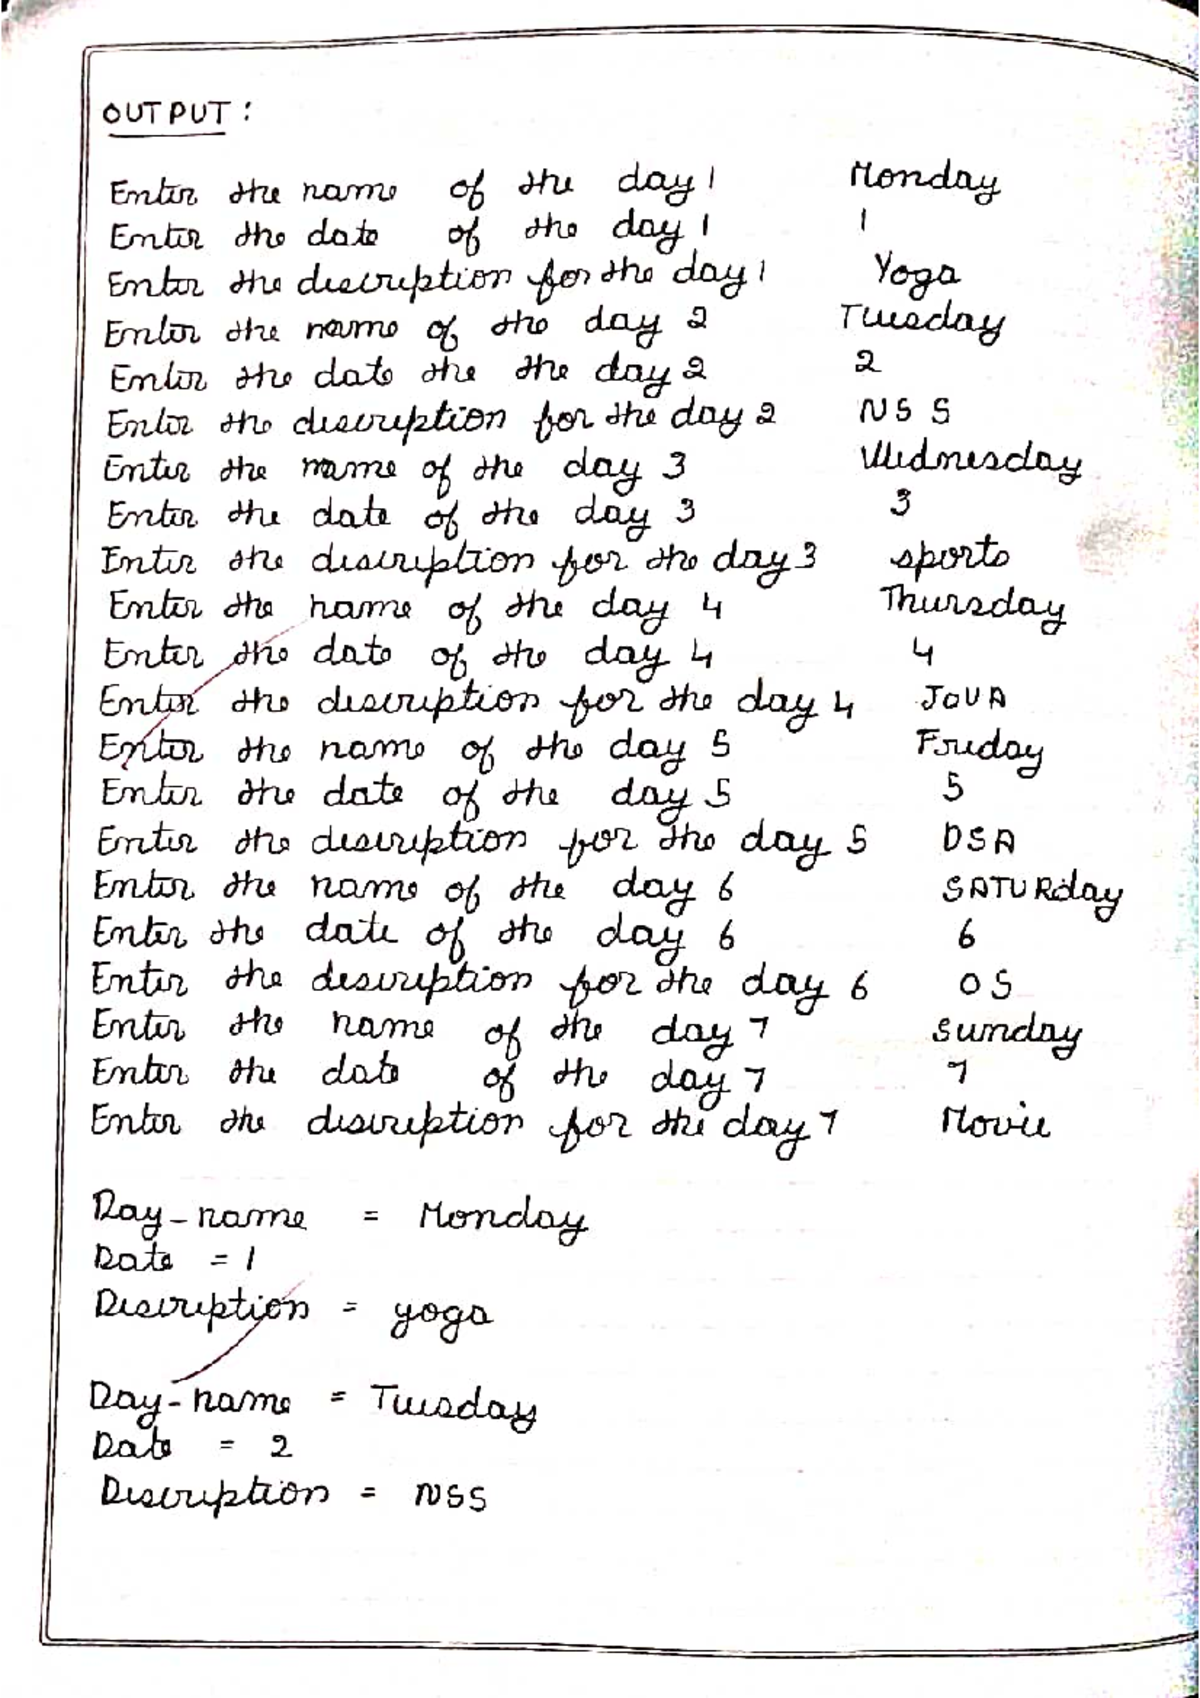 OUTPUT :
Enter the name of the day 1 Monday
Enter the date of the day 1 1
Enter the discription for the day 1 Yoga
Enter the name of the day 2 Tuesday
Enter the date the the day 2 2
Enter the discription for the day 2 NSS
Enter the name of the day 3 Wednesday
Enter the date of the day 3 3
Enter the discription for the day 3 sports
Enter the name of the day 4 Thursday
Enter the date of the day 4 4
Enter the discription for the day 4 JOVA
Enter the name of the day 5 Friday
Enter the date of the day 5 5
Enter the discription for the day 5 DSA
Enter the name of the day 6 SATURday
Enter the date of the day 6 6
Enter the discription for the day 6 OS
Enter the name of the day 7 Sunday
Enter the date of the day 7 7
Enter the discription for the day 7 Movie
Day-name = Monday
Date = 1
Discription = yoga
Day-name = Tuesday
Date = 2
Discription = NSS